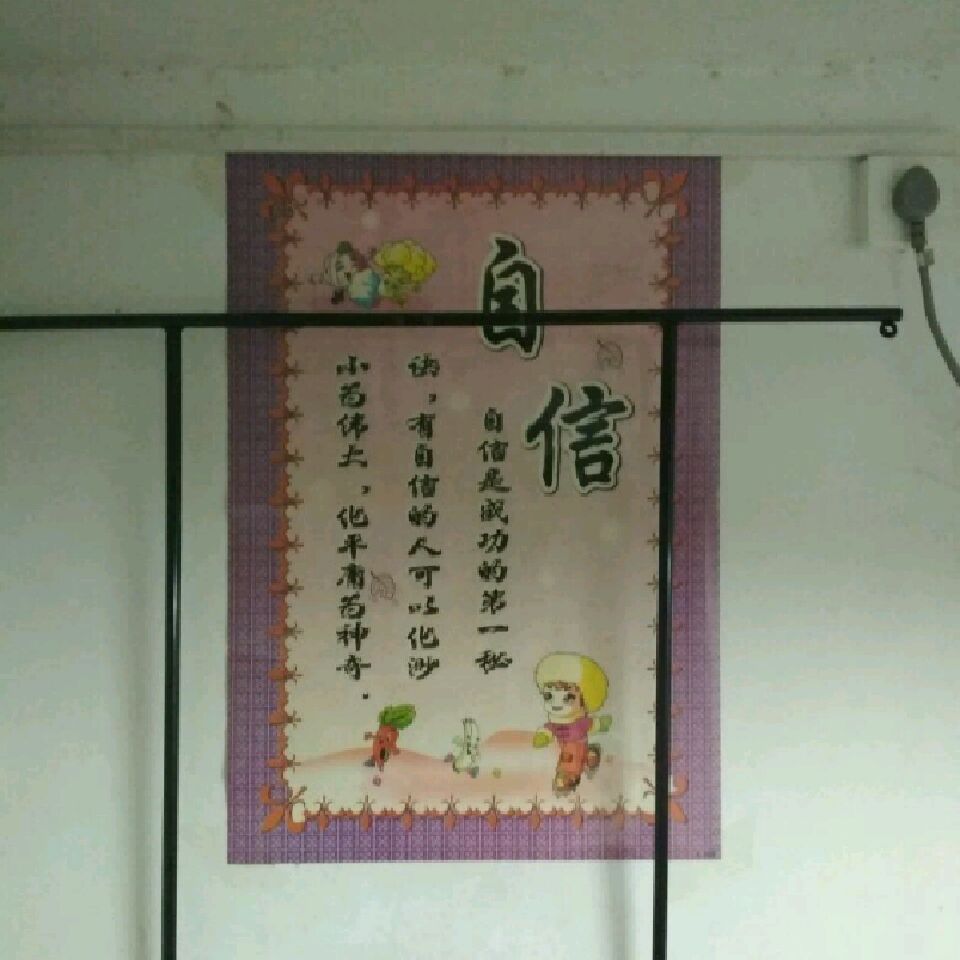 自信
自信是成功的第一秘
诀，有自信的人可以化渺
小为伟大，化平庸为神奇．